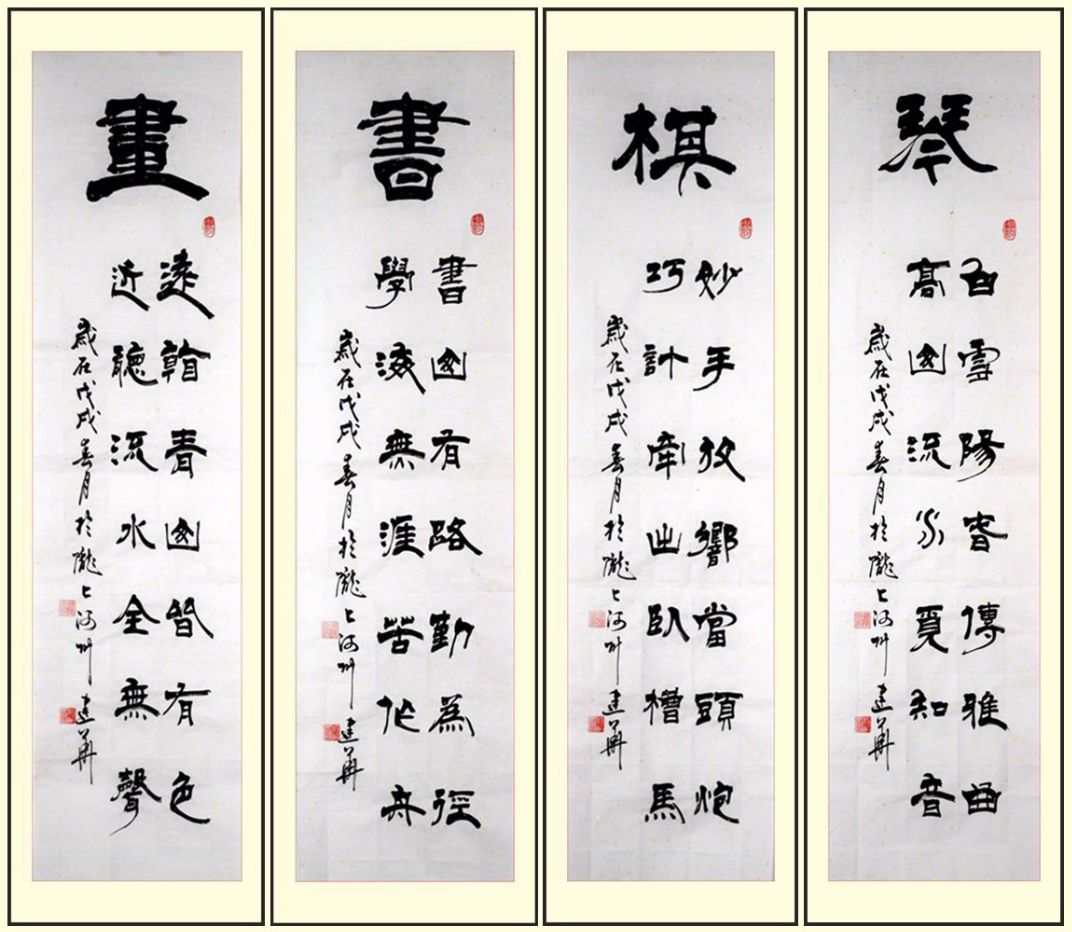 琴
白雪陽春傳雅曲
高山流水覓知音
歲在戊戌春月於隴上河州 建華
棋
妙手放響當頭炮
巧計牽出臥槽馬
歲在戊戌春月於隴上河州 建華
書
書山有路勤為徑
學海無涯苦作舟
歲在戊戌春月於隴上河州 建華
畫
遠看青山皆有色
近聽流水全無聲
歲在戊戌春月於隴上河州 建華